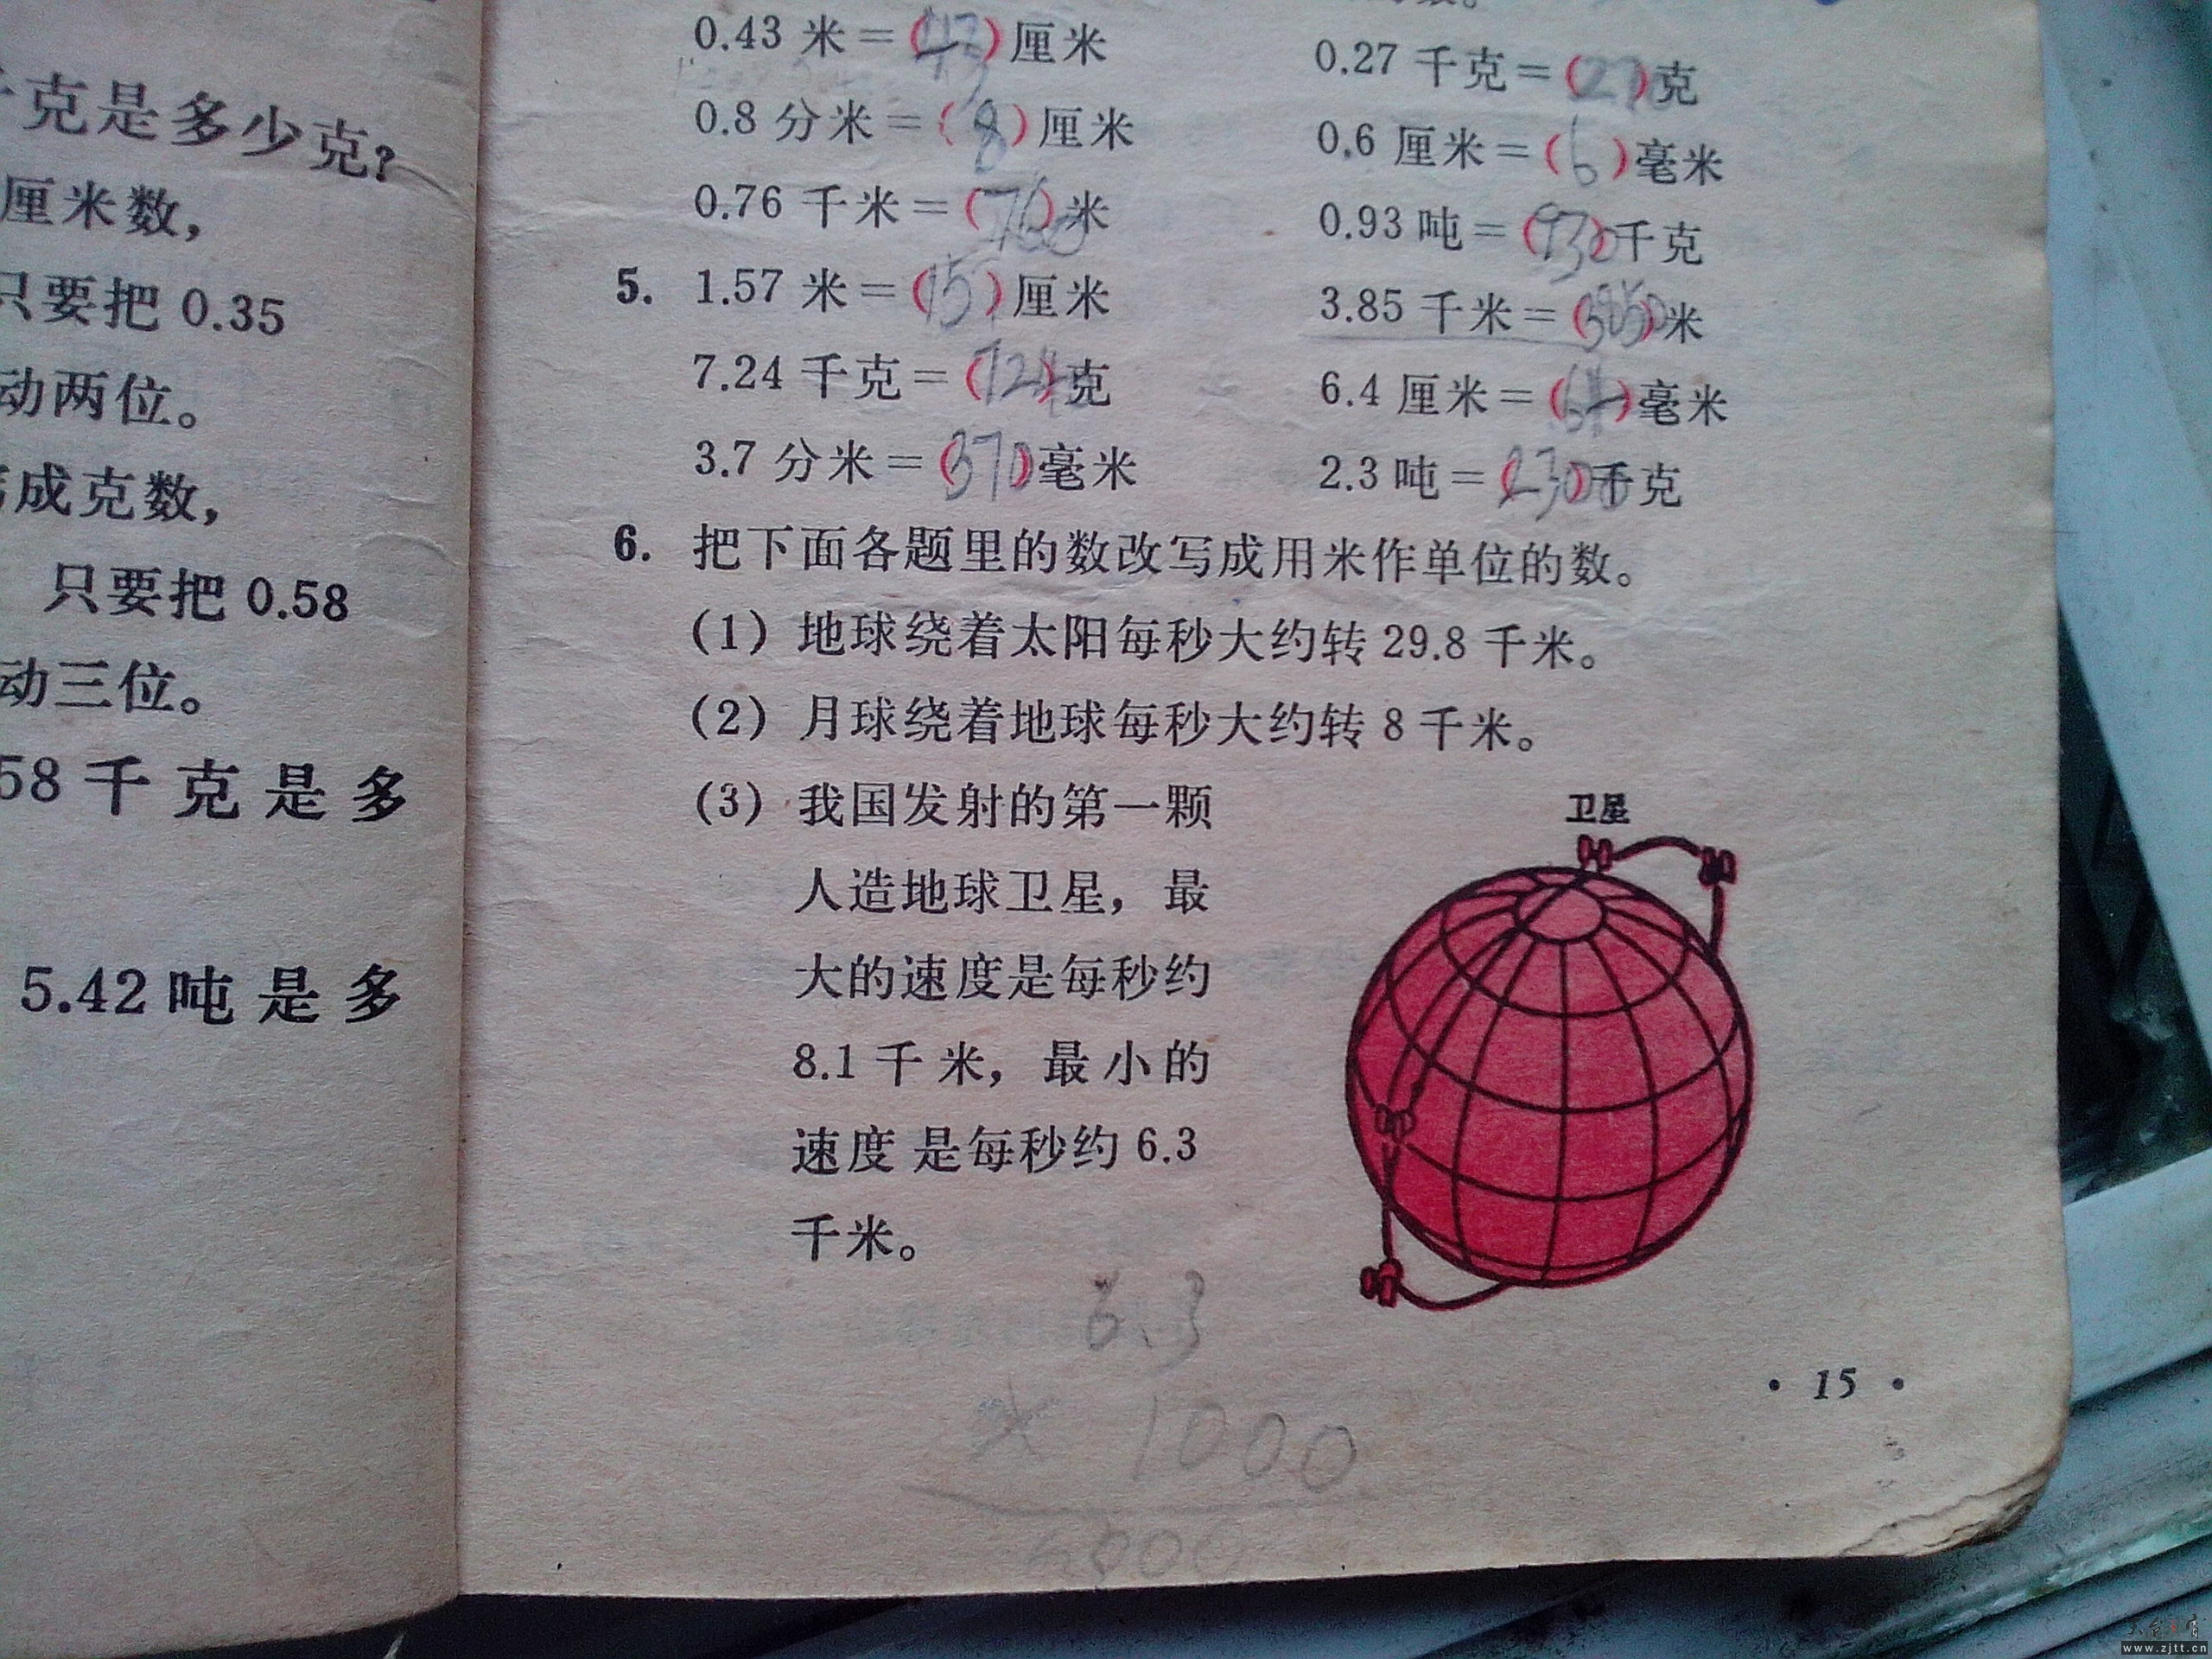 克是多少克?
厘米数,
只要把 0.35
动两位。
成克数,
只要把 0.58
动三位。
58 千克是多
5.42 吨是多
0.43 米=(43)厘米
0.27 千克=(270)克
0.8 分米=(8)厘米
0.6 厘米=(6)毫米
0.76 千米=(760)米
0.93 吨=(930)千克
5. 1.57 米=(157)厘米
3.85 千米=(3850)米
7.24 千克=()克
6.4 厘米=(64)毫米
3.7 分米=(370)毫米
2.3 吨=(2300)千克
6. 把下面各题里的数改写成用米作单位的数。
(1) 地球绕着太阳每秒大约转 29.8 千米。
(2) 月球绕着地球每秒大约转 8 千米。
(3) 我国发射的第一颗
人造地球卫星,最
大的速度是每秒约
8.1 千米,最小的
速度是每秒约 6.3
千米。
卫星
6.3
× 1000
000
• 15 •
www.zjtt.cn